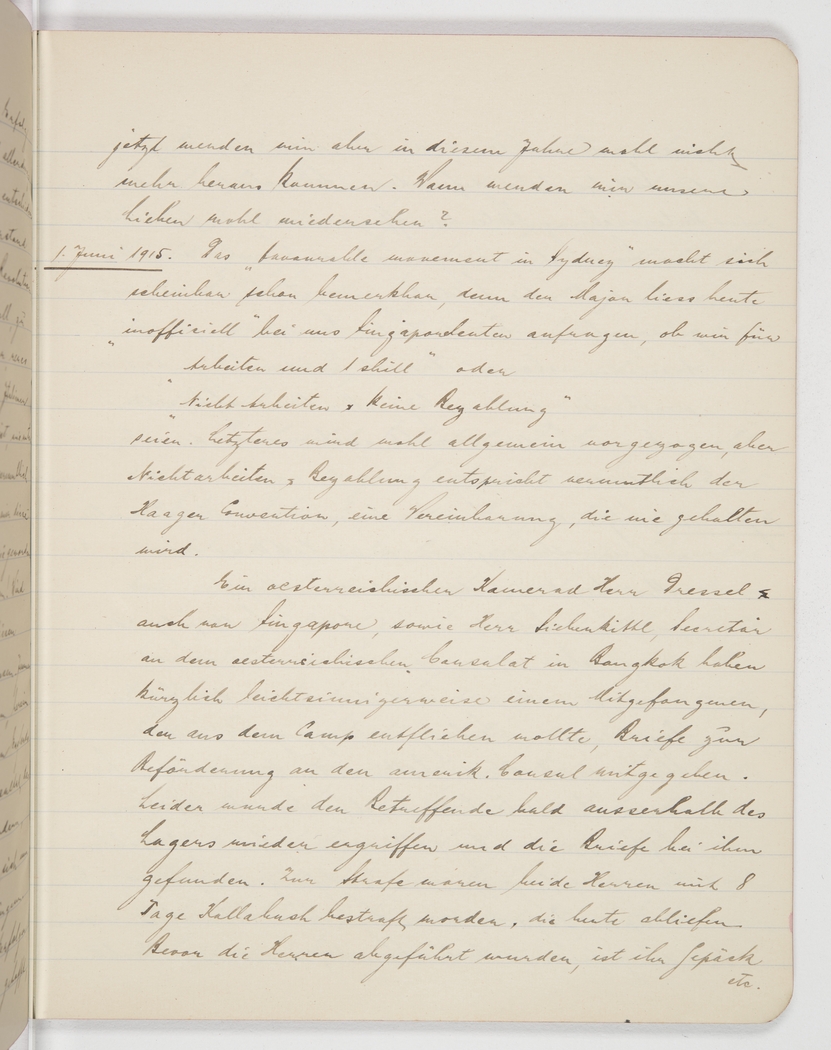 jetzt werden wir aber in diesem Jahre wohl nicht
mehr heraus kommen. Wann werden wir unsere
Lieben wohl wiedersehen?
1. Juni 1915. Das "favourable movement in Sydney" macht sich
scheinbar schon bemerkbar, denn der Major liess heute
"inofficiell" bei uns Singaporeleuten anfragen, ob wir für
"Arbeiten und 1 shill" oder
"Nicht Arbeiten & keine Bezahlung"
seien. Letzteres wird wohl allgemein vorgezogen, aber
Nichtarbeiten & Bezahlung entspricht vermutlich der
Haager Convention, eine Vereinbarung, die nie gehalten
wird.
Ein oesterreichischer Kamerad Herr Dressel
auch von Singapore, sowie Herr Siebenkittl, Secretär
an dem oesterreichischen Consulat in Bangkok haben
kürzlich leichtsinnigerweise einem Mitgefangenen,
der aus dem Camp entfliehen wollte, Briefe zur
Beförderung an den amerik. Consul mitgegeben.
Leider wurde der Betreffende bald ausserhalb des
Lagers wieder ergriffen und die Briefe bei ihm
gefunden. Zur Strafe waren beide Herren mit 8
Tage Kallabush bestraft worden, die heute abliefen
Bevor die Herren abgeführt wurden, ist ihr Gepäck
etc.